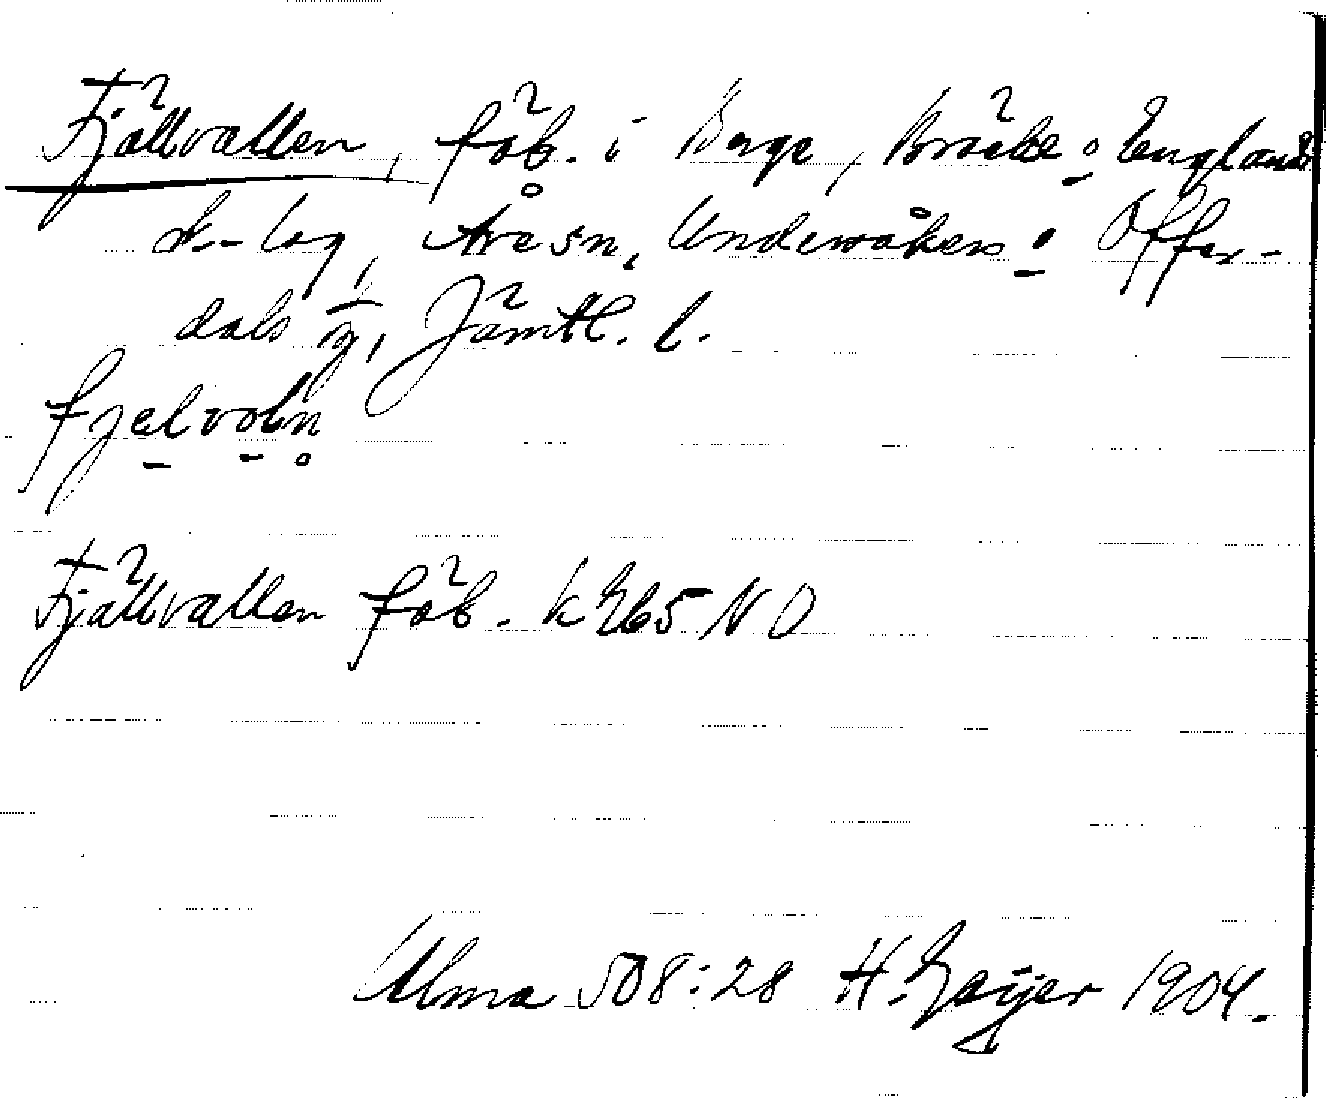 Fjällvallen, fäb. i Berge, Bräcke o England
sk-lag, Åre sn, Undersåkers o Offer-
dals tg, Jämtl. l.
fjælvoln
Fjällvallen fäb. k
Ulma 508:28 H. Geijer 1904.